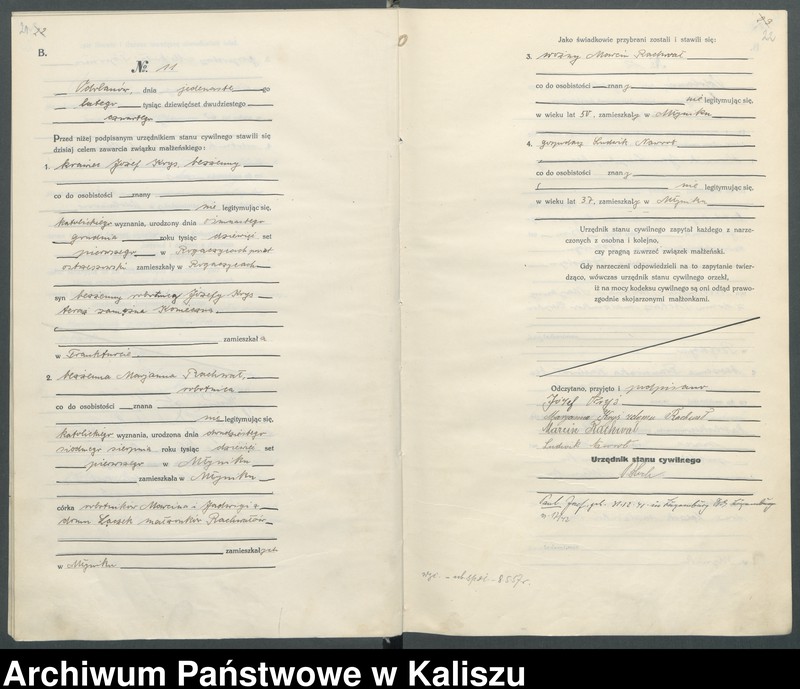 B.
№ 11
dnia jedenastego
lutego tysiąc dziewięćset dwudziestego
czwartego
Przed niżej podpisanym urzędnikiem stanu cywilnego stawili się
dzisiaj celem zawarcia związku małżeńskiego:
1. krawiec Józef Krys, bezżenny
co do osobistości znany
nie legitymując się,
katolickiego wyznania, urodzony dnia ósmnastego
grudnia roku tysiąc dziewięć set
pierwszego w Rogaszycach powiat
ostrzeszowski zamieszkały w Rogaszycach
syn bezżennej robotnicy Józefy Krys
teraz zamężna
zamieszkał a
w Frankfurcie
2. bezżenna Marjanna Rachwał,
robotnica
co do osobistości znana
nie legitymując się,
katolickiego wyznania, urodzona dnia dwudziestego
siódmego sierpnia roku tysiąc dziewięć set
pierwszego w Młyniku
zamieszkała w Młyniku
córka robotników Marcina i Jadwigi z
domu małżonków Rachwałów
zamieszkał
w Młyniku
22
Jako świadkowie przybrani zostali i stawili się:
3. woźny Marcin Rachwał
co do osobistości znany
nie legitymując się,
w wieku lat 50, zamieszkały w Młyniku
4. gospodarz Ludwik Nawrot
co do osobistości znany
nie legitymując się,
w wieku lat 37, zamieszkały w Młyniku
Urzędnik stanu cywilnego zapytał każdego z narze-
czonych z osobna i kolejno,
czy pragną zawrzeć związek małżeński.
Gdy narzeczeni odpowiedzieli na to zapytanie twier-
dząco, wówczas urzędnik stanu cywilnego orzekł,
iż na mocy kodeksu cywilnego są oni odtąd prawo-
zgodnie skojarzonymi małżonkami.
Odczytano, przyjęto i podpisano
Józef Kryś
Marjanna Kryś Rachwał
Marcin Rachwał
Ludwik Nawrot
Urzędnik stanu cywilnego
Archiwum Państwowe w Kaliszu